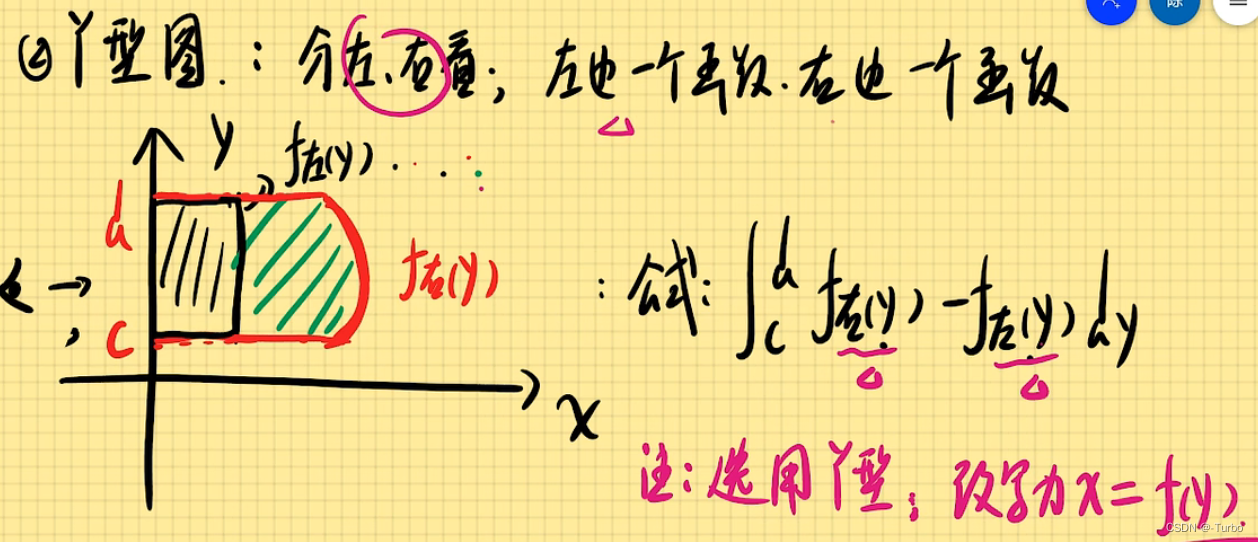 ② Y型图.：分左、右看；左边一个函数.右边一个函数
y
f左(y)
d
f右(y)
c
x
：公式：∫_c^d f右(y) - f左(y) dy
注：选用Y型；改写为x = f(y).
除
CSDN @-Turbo